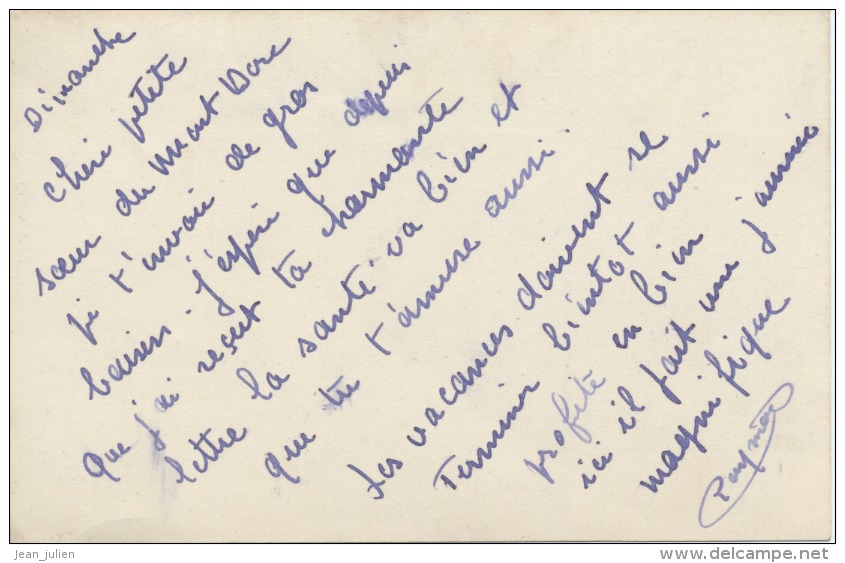 Dimanche
Cheri petite
sœur du Mont Dore
je t'envoie de gros
baisers. J'espere que depuis
que j'ai reçut ta charmante
lettre la santé va bien et
que tu t'amuse aussi.
Les vacances doivent se
Terminer bientot aussi
profite en bien
ici il fait une journée
magnifique
jean_julien
delcampe.net